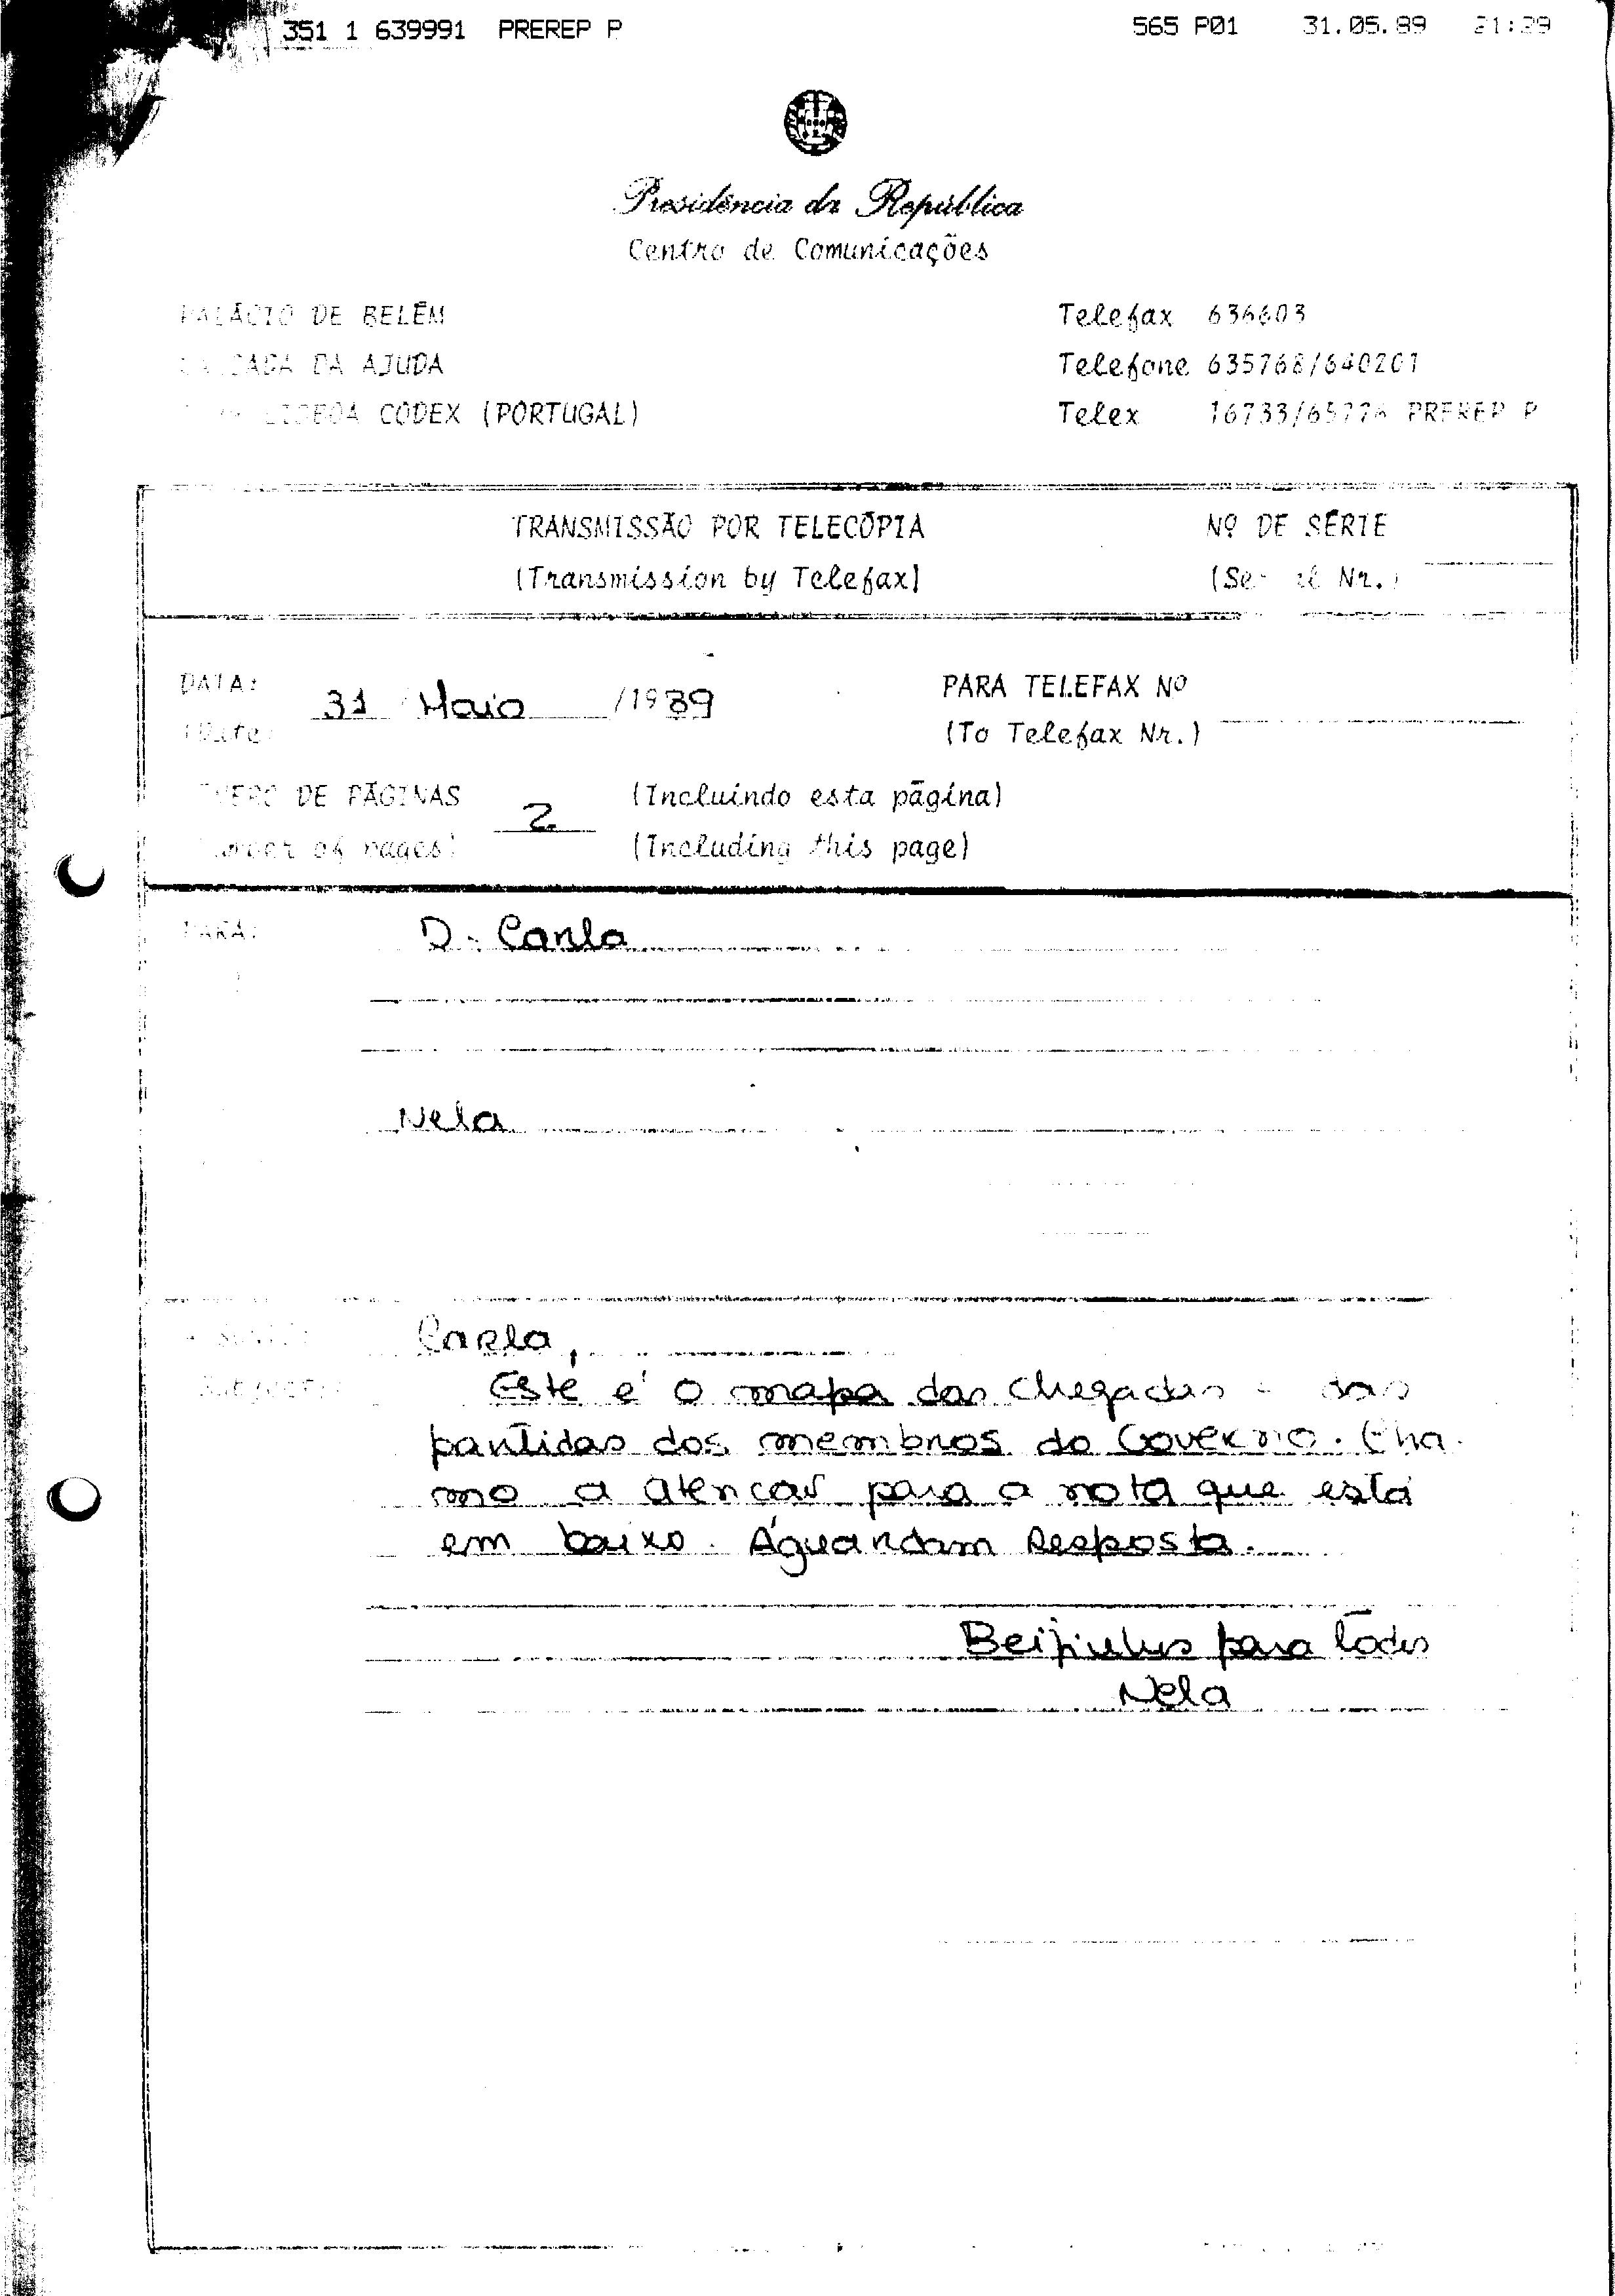 351 1 639991 PREREP P 565 P01 31.05.89 21:29
Presidência da República
Centro de Comunicações
PALÁCIO DE BELÉM Telefax 636603
DA AJUDA Telefone 635768/640201
LISBOA CODEX (PORTUGAL) Telex PREREP P
TRANSMISSÃO POR TELECÓPIA Nº DE SÉRIE
(Transmission by Telefax) Nr.)
DATA: 31 Maio /1989 PARA TELEFAX Nº
(Date) (To Telefax Nr.)
DE PÁGINAS 2 (Incluindo esta página)
of pages) (Including this page)
PARA: D. Carla
Nela
Carla,
Subject:
Este é o mapa das chegadas - das
partidas dos membros do Governo. Cha-
mo a atencao para a nota que está
em baixo. Aguardam Resposta.
Beijinhos para todos
Nela